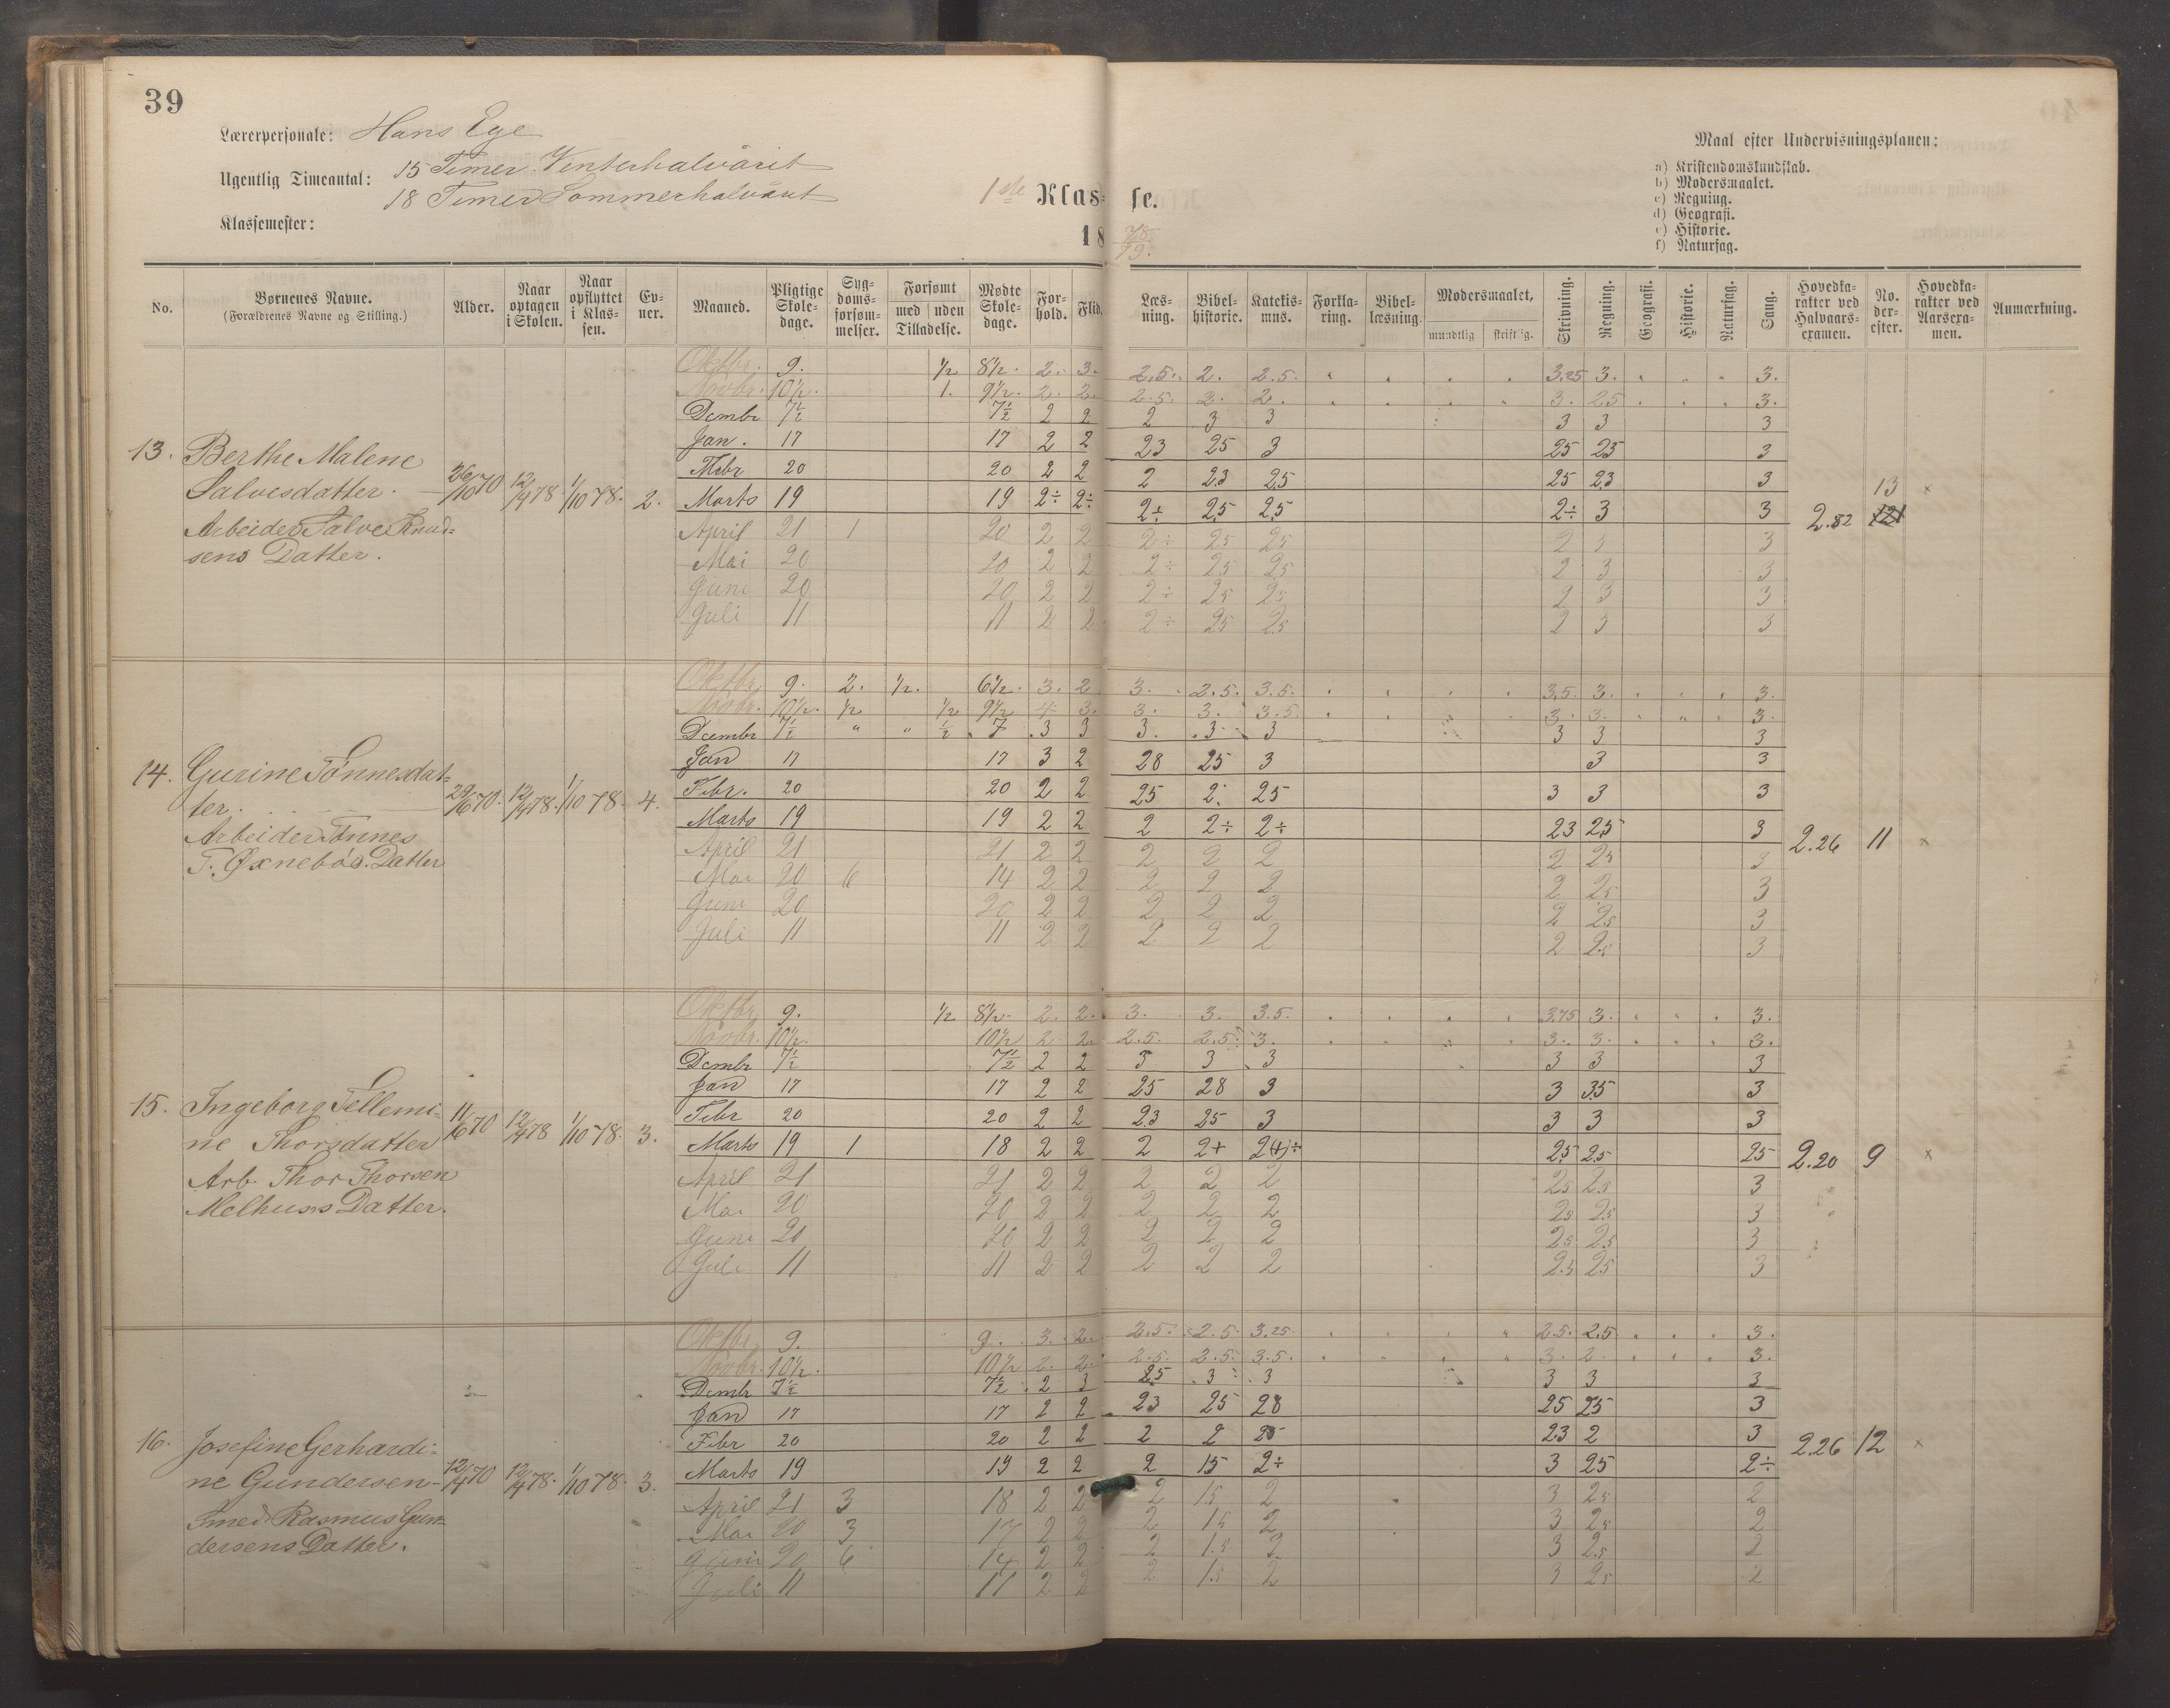 39
Lærerpersonale: Hans Ege
Ugentlig Timeantal: 15 Timer Vinterhalvåret
18 Timer Sommerhalvåret
Klassemester:
1ste Klasse.
18 78/79.
Maal efter Undervisningsplanen:
a) Kristendomskundskab.
b) Modersmaalet.
c) Regning.
d) Geografi.
e) Historie.
f) Naturfag.
No. | Børnenes Navne. (Forældrenes Navne og Stilling.) | Alder. | Naar optagen i Skolen. | Naar opflyttet i Klassen. | Evner. | Maaned. | Pligtige Skoledage. | Sygdomsforsømmelser. | Forsømt med / uden Tilladelse. | Mødte Skoledage. | Forhold. | Flid. | Læsning. | Bibelhistorie. | Katekismus. | Forklaring. | Bibellæsning. | Modersmaalet, mundtlig / skriftlig. | Skrivning. | Regning. | Geografi. | Historie. | Naturfag. | Sang. | Hovedkarakter ved Halvaarsexamen. | No. derefter. | Hovedkarakter ved Aarsexamen. | Anmærkning.
Oktbr. 9. 1/2 8 1/2. 2. 3. 2.5. 2. 2.5. 3.25 3. 3.
Novbr. 10 1/2. 1. 9 1/2. 2. 2. 2.5. 2. 2. 3. 2.5 3.
Dcmbr 7 1/2 7 1/2 2 2 2 3 3 3 3 3
Jan. 17 17 2 2 23 25 3 25 25 3
Febr 20 20 2 2 2 23 25 25 23 3
Marts 19 19 2÷ 2÷ 2÷ 25 25 2÷ 3 3
April 21 1 20 2 2 2÷ 25 25 2 3 3
Mai 20 20 2 2 2÷ 25 25 2 3 3
Juni 20 20 2 2 2÷ 25 25 2 3 3
Juli 11 11 2 2 2÷ 25 25 2 3 3
13. Berthe Malene
Salvesdatter. 26/10 70 12/4 78 1/10 78. 2. 2.82 13 ×
Arbeider Salve Knud-
sens Datter.
Oktbr. 9. 2. 1/2. 6 1/2. 3. 2 3. 2.5. 3.5. 3.5. 3. 3.
Novbr. 10 1/2. 1/2 1/2 9 1/2 4. 3. 3. 3. 3.5. 3. 3. 3.
Dcembr 7 1/2 " " 1/2 7 3 3 3. 3 3 3 3 3
Jan 17 17 3 2 28 25 3 3 3
Febr. 20 20 2 2 25 2. 25 3 3 3
Marts 19 19 2 2 2 2÷ 2÷ 23 25 3
April 21 21 2 2 2 2 2 2 25 3
Mai 20 6 14 2 2 2 2 2 2 25 3
Juni 20 20 2 2 2 2 2 2 25 3
Juli 11 11 2 2 2 2 2 2 25 3
14. Gurine Tönnesdat-
ter. 29/6 70. 12/4 78. 1/10 78. 4. 2.26 11 ×
Arbeider Tönnes
T. Øxnebös Datter
Oktbr. 9. 1/2 8 1/2. 2. 2. 3. 3. 3.5. 3.75 3. 3.
Novbr. 10 1/2. 10 1/2 2 2. 2.5. 2.5. 3. 3. 3. 3.
Dcmbr 7 1/2 7 1/2 2 2 3 3 3 3 3 3
Jan 17 17 2 2 25 28 3 3 35 3
Febr 20 20 2 2 23 25 3 3 3 3
Marts 19 1 18 2 2 2 2+ 2(+)÷ 25 25 25
April 21 21 2 2 2 2 2 25 25 3
Mai 20 20 2 2 2 2 2 25 25 3
Juni 20 20 2 2 2 2 2 25 25 3
Juli 11 11 2 2 2 2 2 2.5 25 3
15. Ingeborg Tellemi-
ne Thorsdatter 11/6 70 12/4 78 1/10 78. 3. 2.20 9 ×
Arb. Thor Thorsen
Melhuss Datter.
Oktbr. 9. 9. 3. 2. 2.5. 2.5. 3.25. 2.5. 2.5 3.
Novbr. 10 1/2. 10 1/2 2. 2. 2.5. 2.5. 3.5. 3. 2. 3.
Dcmb 7 1/2 7 1/2 2 3 25 3 3 3 3 3
Jan 17 17 2 2 23 25 28 25 25 3
Febr 20 20 2 2 2 2 25 23 2 3
Marts 19 19 2 2 2 15 2÷ 3 25 2÷
April 21 3 18 2 2 2 15 2 3 25 2
Mai 20 3 17 2 2 2 15 2 3 25 2
Juni 20 6 14 2 2 2 1.5 2 3 25 2
Juli 11 11 2 2 2 1.5 2 3 25 2
16. Josefine Gerhardi-
ne Gundersen 12/4 70 12/4 78. 1/10 78. 3. 2.26 12 ×
Smed Rasmus Gun-
dersens Datter.